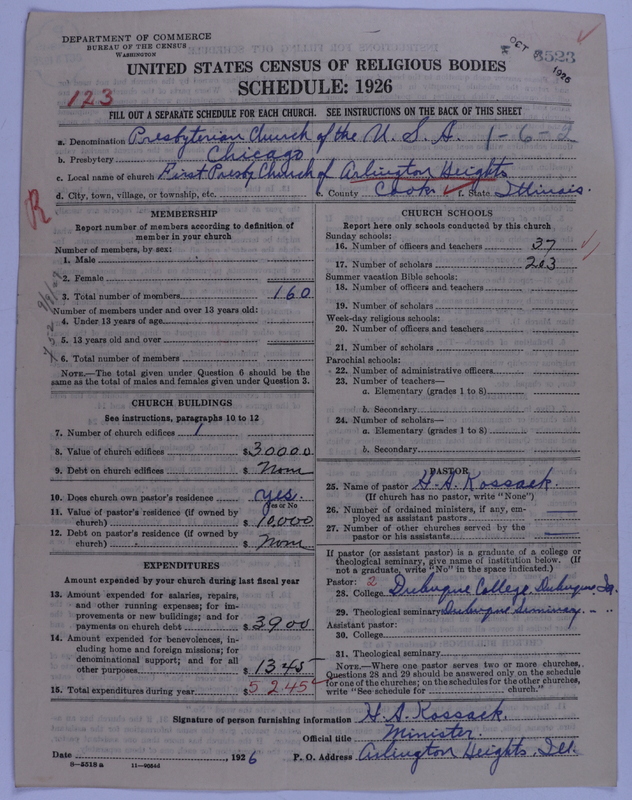 DEPARTMENT OF COMMERCE
BUREAU OF THE CENSUS
WASHINGTON
OCT 1926
3523
UNITED STATES CENSUS OF RELIGIOUS BODIES
SCHEDULE: 1926
123
FILL OUT A SEPARATE SCHEDULE FOR EACH CHURCH. SEE INSTRUCTIONS ON THE BACK OF THIS SHEET
a. Denomination Presbyterian Church of the U. S. A. 1-6-2
b. Presbytery Chicago
c. Local name of church First Presby Church of Arlington Heights
d. City, town, village, or township, etc. e. County Cook f. State Illinois.
R
MEMBERSHIP
Report number of members according to definition of member in your church
Number of members, by sex:
1. Male
2. Female
3. Total number of members 160
Number of members under and over 13 years old:
4. Under 13 years of age
5. 13 years old and over
6. Total number of members
NOTE.—The total given under Question 6 should be the same as the total of males and females given under Question 3.
CHURCH BUILDINGS
See instructions, paragraphs 10 to 12
7. Number of church edifices 1
8. Value of church edifices $30000
9. Debt on church edifices $ None
10. Does church own pastor's residence yes.
Yes or No
11. Value of pastor's residence (if owned by church) $ 10,000
12. Debt on pastor's residence (if owned by church) $ None
EXPENDITURES
Amount expended by your church during last fiscal year
13. Amount expended for salaries, repairs, and other running expenses; for improvements or new buildings; and for payments on church debt $3900
14. Amount expended for benevolences, including home and foreign missions; for denominational support; and for all other purposes $1345
15. Total expenditures during year $5245
CHURCH SCHOOLS
Report here only schools conducted by this church
Sunday schools:
16. Number of officers and teachers 37
17. Number of scholars 203
Summer vacation Bible schools:
18. Number of officers and teachers
19. Number of scholars
Week-day religious schools:
20. Number of officers and teachers
21. Number of scholars
Parochial schools:
22. Number of administrative officers
23. Number of teachers—
a. Elementary (grades 1 to 8)
b. Secondary
24. Number of scholars—
a. Elementary (grades 1 to 8)
b. Secondary
PASTOR
25. Name of pastor H. A. Kossack
(If church has no pastor, write "None")
26. Number of ordained ministers, if any, employed as assistant pastors
27. Number of other churches served by the pastor or his assistants
If pastor (or assistant pastor) is a graduate of a college or theological seminary, give name of institution below. (If not a graduate, write "No" in the space indicated.)
Pastor: 2
28. College Dubuque College, Dubuque Ia.
29. Theological seminary Dubuque Seminary - " "
Assistant pastor:
30. College
31. Theological seminary
NOTE.—Where one pastor serves two or more churches, Questions 28 and 29 should be answered only on the schedule for one of the churches; on the schedules for the other churches, write "See schedule for church."
Signature of person furnishing information H. A. Kossack.
Official title Minister.
Date , 1926 P. O. Address Arlington Heights, Ill.
8—5518 a